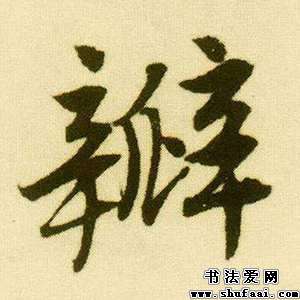 瓣
书法爱网
www.shufaai.com